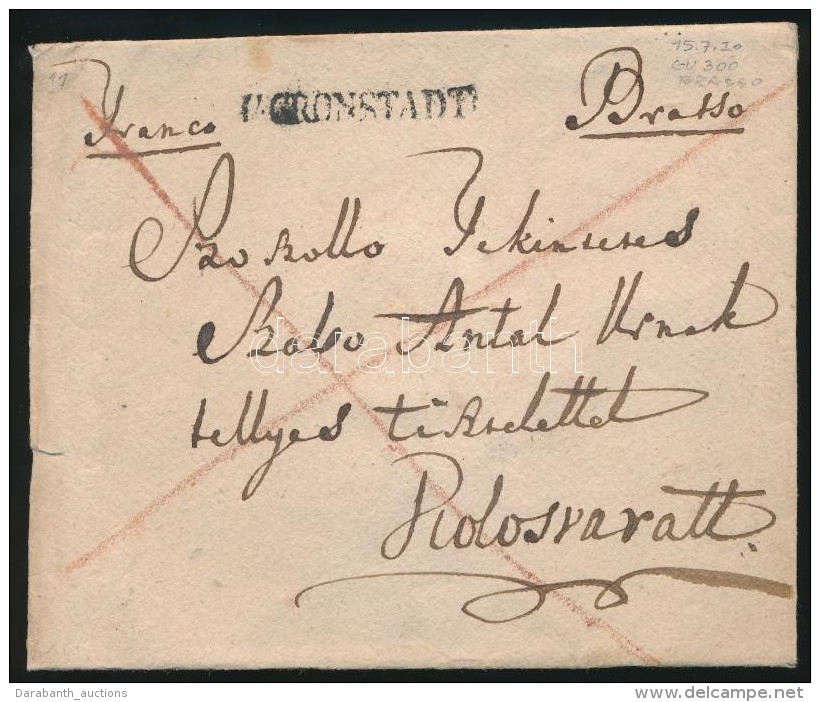 11
15.7.10
GV 300
BRASSO
Franco
CRONSTADT
Brasso
Szo Kollo Tekintetes
Szabo Antal Urnak
tellyes tisztelettel
Kolosvaratt
darabanth
Darabanth_auctions
www.delcampe.net